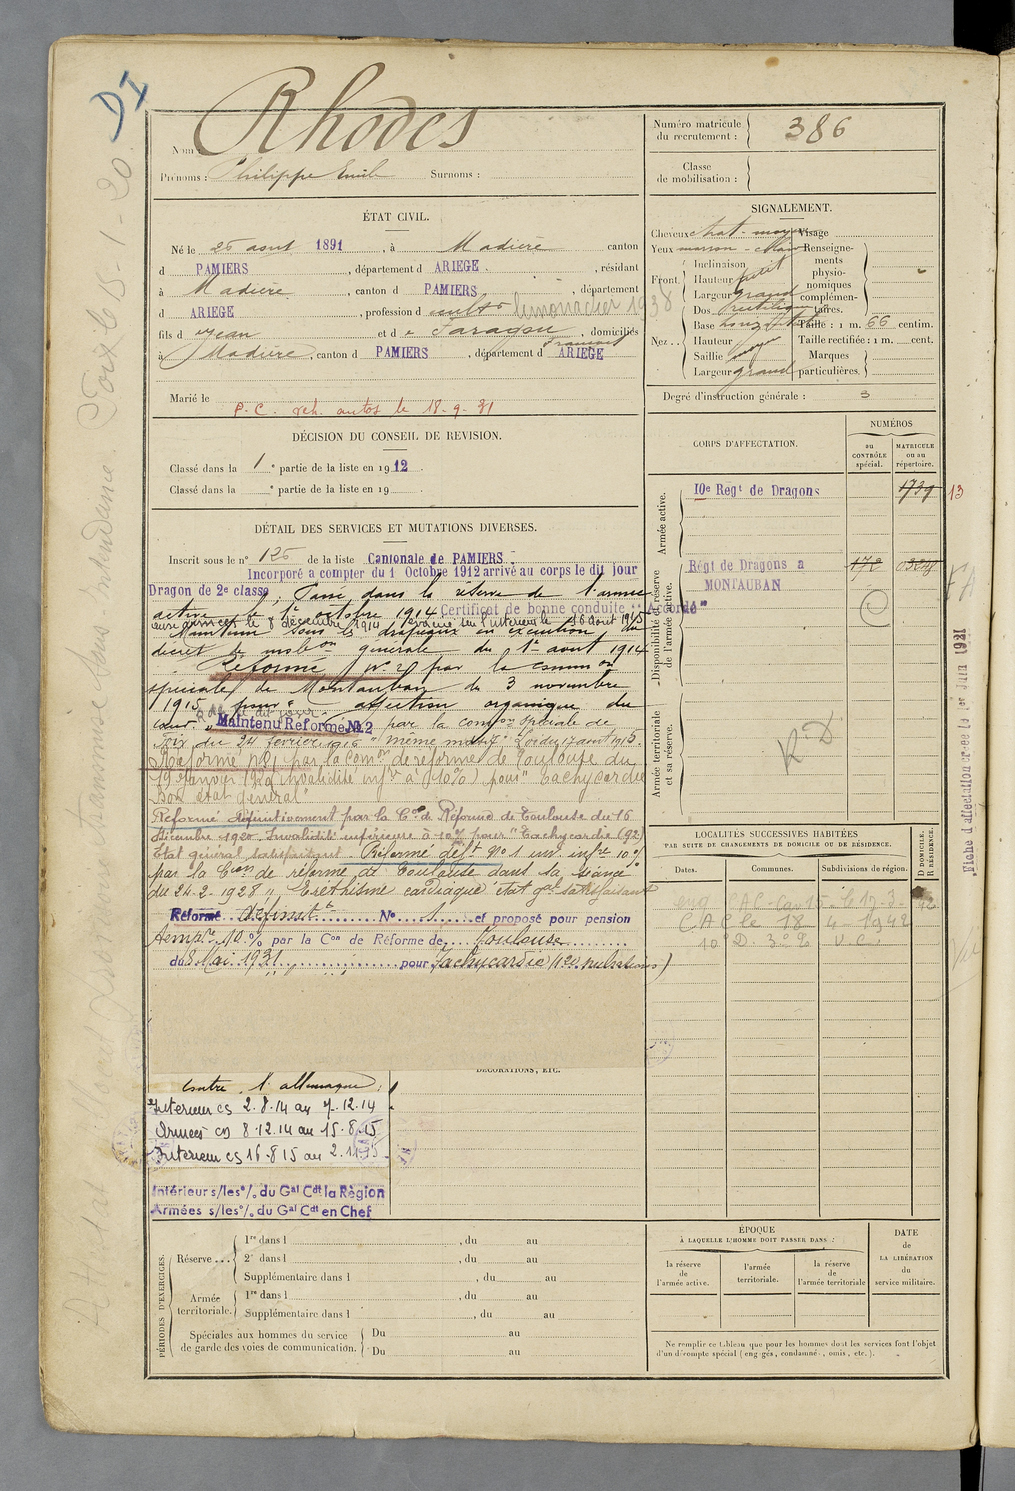 DI
Nom : Rhodes
Prénoms : Philippe Emile Surnoms :
Numéro matricule du recrutement : 386
Classe de mobilisation :
ÉTAT CIVIL.
Né le 26 aout 1891, à Madière canton
d PAMIERS, département d ARIEGE, résidant
à Madière, canton d PAMIERS, département
d ARIEGE, profession d cultr limonadier 1938
fils d Jean et d e Faragou François, domiciliés
à Madière, canton d PAMIERS, département d ARIEGE
Marié le
P.C. veh. autos le 18-9-31
SIGNALEMENT.
Cheveux chat. moyen Visage
Yeux marron - clair
Front Inclinaison
Hauteur petit
Largeur grand
Nez Dos rectiligne
Base horizontale
Hauteur
Saillie moyen
Largeur grand
Renseignements physionomiques complémentaires.
Taille : 1 m. 66 centim.
Taille rectifiée : 1 m. cent.
Marques particulières.
Degré d'instruction générale : 3
DÉCISION DU CONSEIL DE REVISION.
Classé dans la 1e partie de la liste en 1912.
Classé dans la e partie de la liste en 19
DÉTAIL DES SERVICES ET MUTATIONS DIVERSES.
Inscrit sous le n° 126 de la liste Cantonale de PAMIERS.
Incorporé a compter du 1 Octobre 1912 arrivé au corps le dit jour
Dragon de 2e classe, Passé dans la réserve de l'armée
active le 1er octobre 1914 Certificat de bonne conduite "Accordé"
aux armées le 8 décembre 1914 évacué sur l'intérieur le 16 aout 1915
Maintenu sous les drapeaux en exécution du
décret de mobon générale du 1er aout 1914
Réformé N° 2 par la commion
spéciale de Montauban du 3 novembre
1915 pour "affection organique du
cœur" Maintenu Réformé N° 2 par la comon spéciale de
Foix du 24 février 1916 "même motif" Loi du 17 aout 1915.
Réformé N° 1 par la Comon de réforme de Toulouse du
19 Janvier 1920 invalidité infre à 10%) pour "Tachycardie
Bon état général"
Réformé définitivement par la Con de Réforme de Toulouse du 16
décembre 1920. Invalidité inférieure à 10% pour "Tachycardie (92)
Etat général satisfaisant. Réformé deft N° 1 inv. infre 10%
par la Cion de réforme de Toulouse dans sa séance
du 24-2-1928 "Eréthisme cardiaque état gal satisfaisant"
Réformé définit t N° 1 et proposé pour pension
tempre 10% par la Con de Réforme de Toulouse
du 8 Mai 1931 pour Tachycardie (120 pulsations)
DÉCORATIONS, ETC.
Contre l'allemagne :
Interieur cs 2.8.14 au 7.12.14
Armées cs 8.12.14 au 15.8.15
Interieur cs 16.8.15 au 2.11.15
Intérieur s/les °/. du Gal Cdt la Région
Armées s/les °/. du Gal Cdt en Chef
CORPS D'AFFECTATION.
NUMÉROS
au CONTRÔLE spécial.
MATRICULE ou au répertoire.
Armée active.
10e Regt de Dragons 1739 13
Disponibilité et réserve de l'armée active.
Régt de Dragons a MONTAUBAN 172
Armée territoriale et sa réserve.
RD
LOCALITÉS SUCCESSIVES HABITÉES
PAR SUITE DE CHANGEMENTS DE DOMICILE OU DE RÉSIDENCE.
Dates. Communes. Subdivisions de région. D DOMICILE. R RÉSIDENCE.
CAC le 18 4 1942
Fiche d'affectation créée le 1er Juin 1931
PÉRIODES D'EXERCICES.
Réserve 1re dans l , du au
2e dans l , du au
Supplémentaire dans l , du au
Armée territoriale. 1re dans l , du au
Supplémentaire dans l , du au
Spéciales aux hommes du service de garde des voies de communication. Du au
Du au
ÉPOQUE
À LAQUELLE L'HOMME DOIT PASSER DANS :
la réserve de l'armée active.
l'armée territoriale.
la réserve de l'armée territoriale
DATE de LA LIBÉRATION du service militaire.
Ne remplir ce tableau que pour les hommes dont les services font l'objet
d'un décompte spécial (engagés, condamnés, omis, etc.).